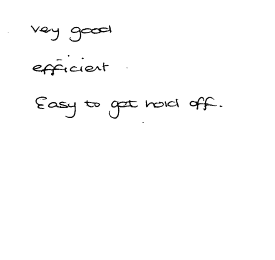 very good
efficient
Easy to get hold off.